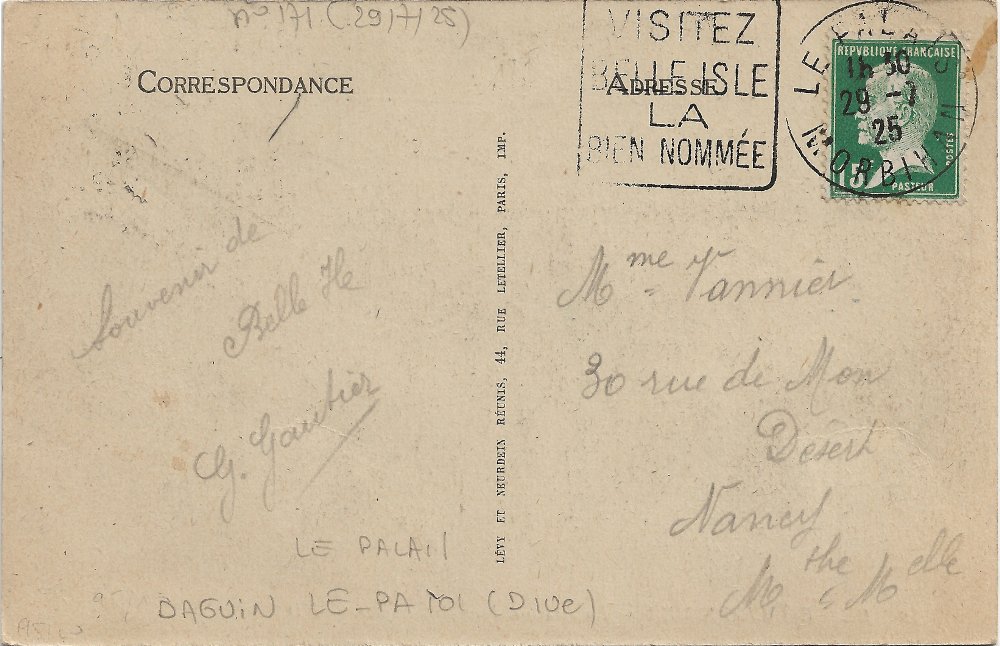 n° 171 (29/7/25)
CORRESPONDANCE
ADRESSE
VISITEZ
BELLE ISLE
LA
BIEN NOMMÉE
LE PALAIS
18 30
29 -7
25
MORBIHAN
REPUBLIQUE FRANÇAISE
15
POSTES
PASTEUR
Souvenir de
Belle Ile
G. Gautier
LÉVY ET NEURDEIN RÉUNIS, 44, RUE LETELLIER, PARIS, IMP.
Mme Vannier
30 rue de Mon
Desert
Nancy
Mthe Melle
LE PALAIS
DAGUIN LE-PA 101 (DIVe)